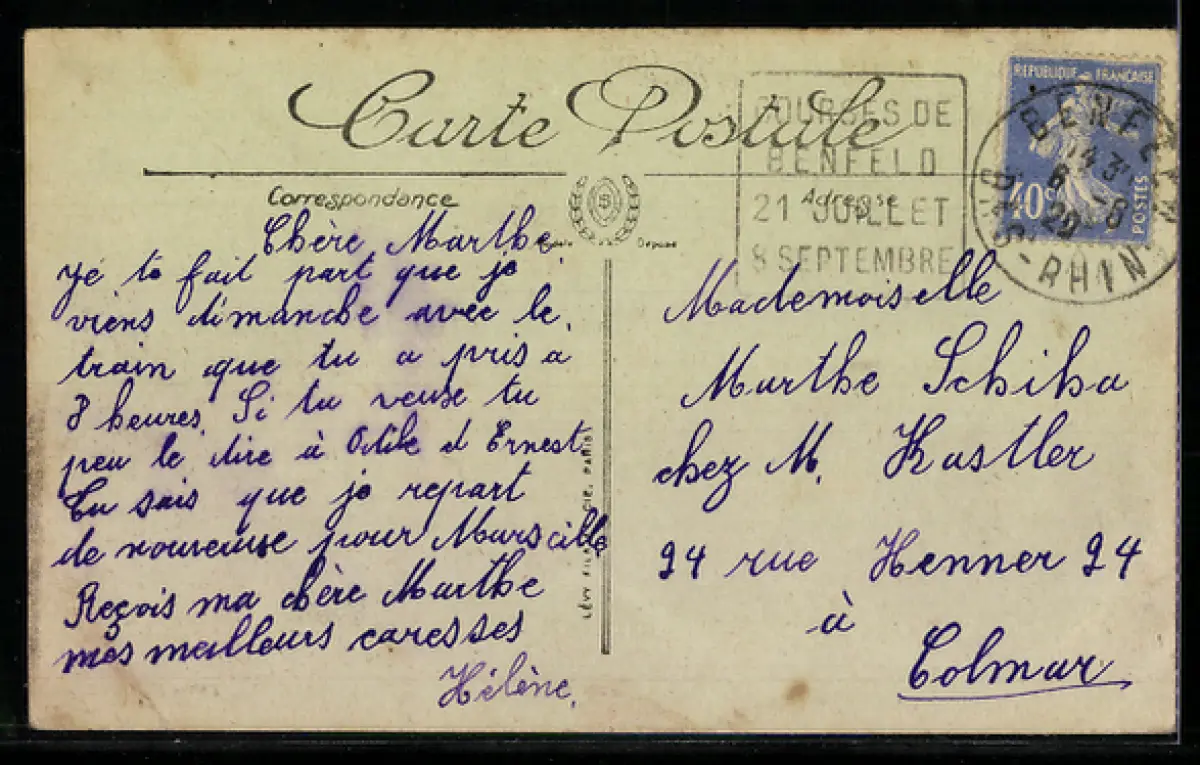 Carte Postale
COURSES DE
BENFELD
21 JUILLET
8 SEPTEMBRE
REPUBLIQUE FRANÇAISE
40c
POSTES
BENFELD
BAS-RHIN
Correspondance
Adresse
Chère Marthe.
Je te fait part que je
viens dimanche avec le
train que tu a pris a
8 heures. Si tu veuse tu
peu le dire à Odile et Ernest
Tu sais que je repart
de nouveuse pour Marseille
Reçois ma chère Marthe
mes meilleurs caresses
Hélène.
LÉVY PARIS
Mademoiselle
Marthe Schiba
chez M. Kastler
24 rue Henner 24
à
Colmar